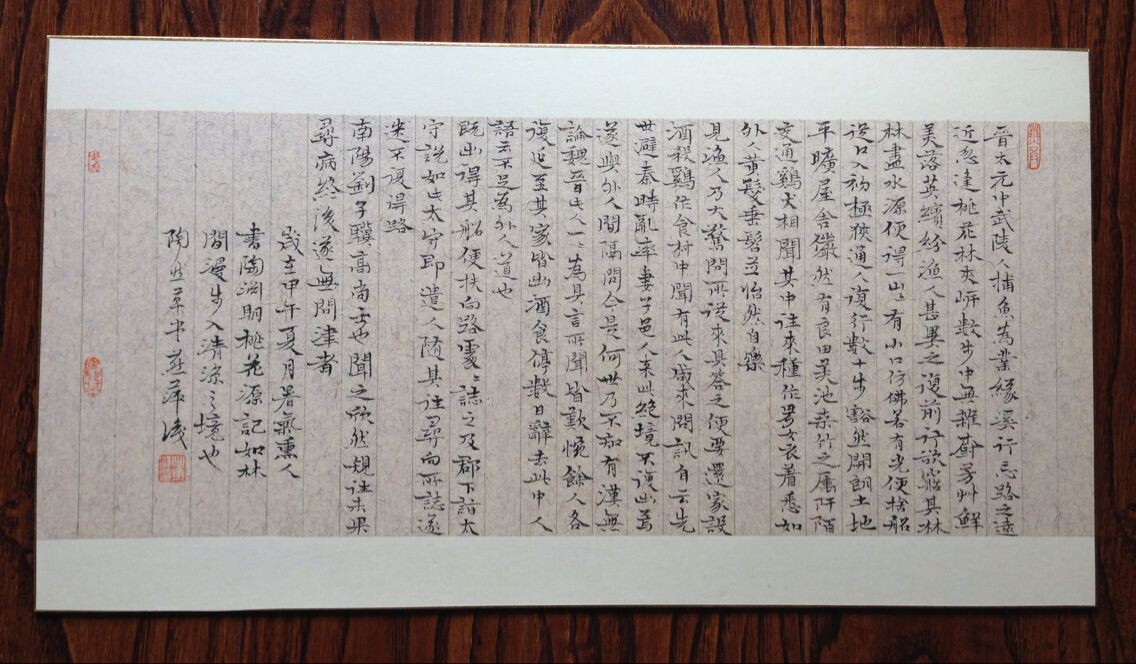 晉太元中武陵人捕魚為業緣溪行忘路之遠
近忽逢桃花林夾岍數步中無雜樹芳艸鮮
美落英繽紛漁人甚異之復前行欲窮其林
林盡水源便得一山〻有小口仿佛若有光便捨船
從口入初極狹通人復行數十步豁然開朗土地
平曠屋舍儼然有良田美池桑竹之屬阡陌
交通鷄犬相聞其中往來種作男女衣着悉如
外人黃髮垂髫並怡然自樂
見漁人乃大驚問所從來具答之便要還家設
酒殺鷄作食村中聞有此人咸來問訊自云先
世避秦時亂率妻子邑人來此絕境不復出焉
遂與外人間隔問今是何世乃不知有漢無
論魏晉此人一〻為具言所聞皆歎惋餘人各
復延至其家皆出酒食停數日辭去此中人
語云不足為外人道也
既出得其船便扶向路處〻誌之及郡下詣太
守說如此太守即遣人隨其往尋向所誌遂
迷不復得路
南陽劉子驥高尚士也聞之欣然規往未果
尋病終後遂無問津者
歲在甲午夏月暑氣熏人
書陶淵明桃花源記如林
間漫步入清涼之境也
陶然草堂燕萍